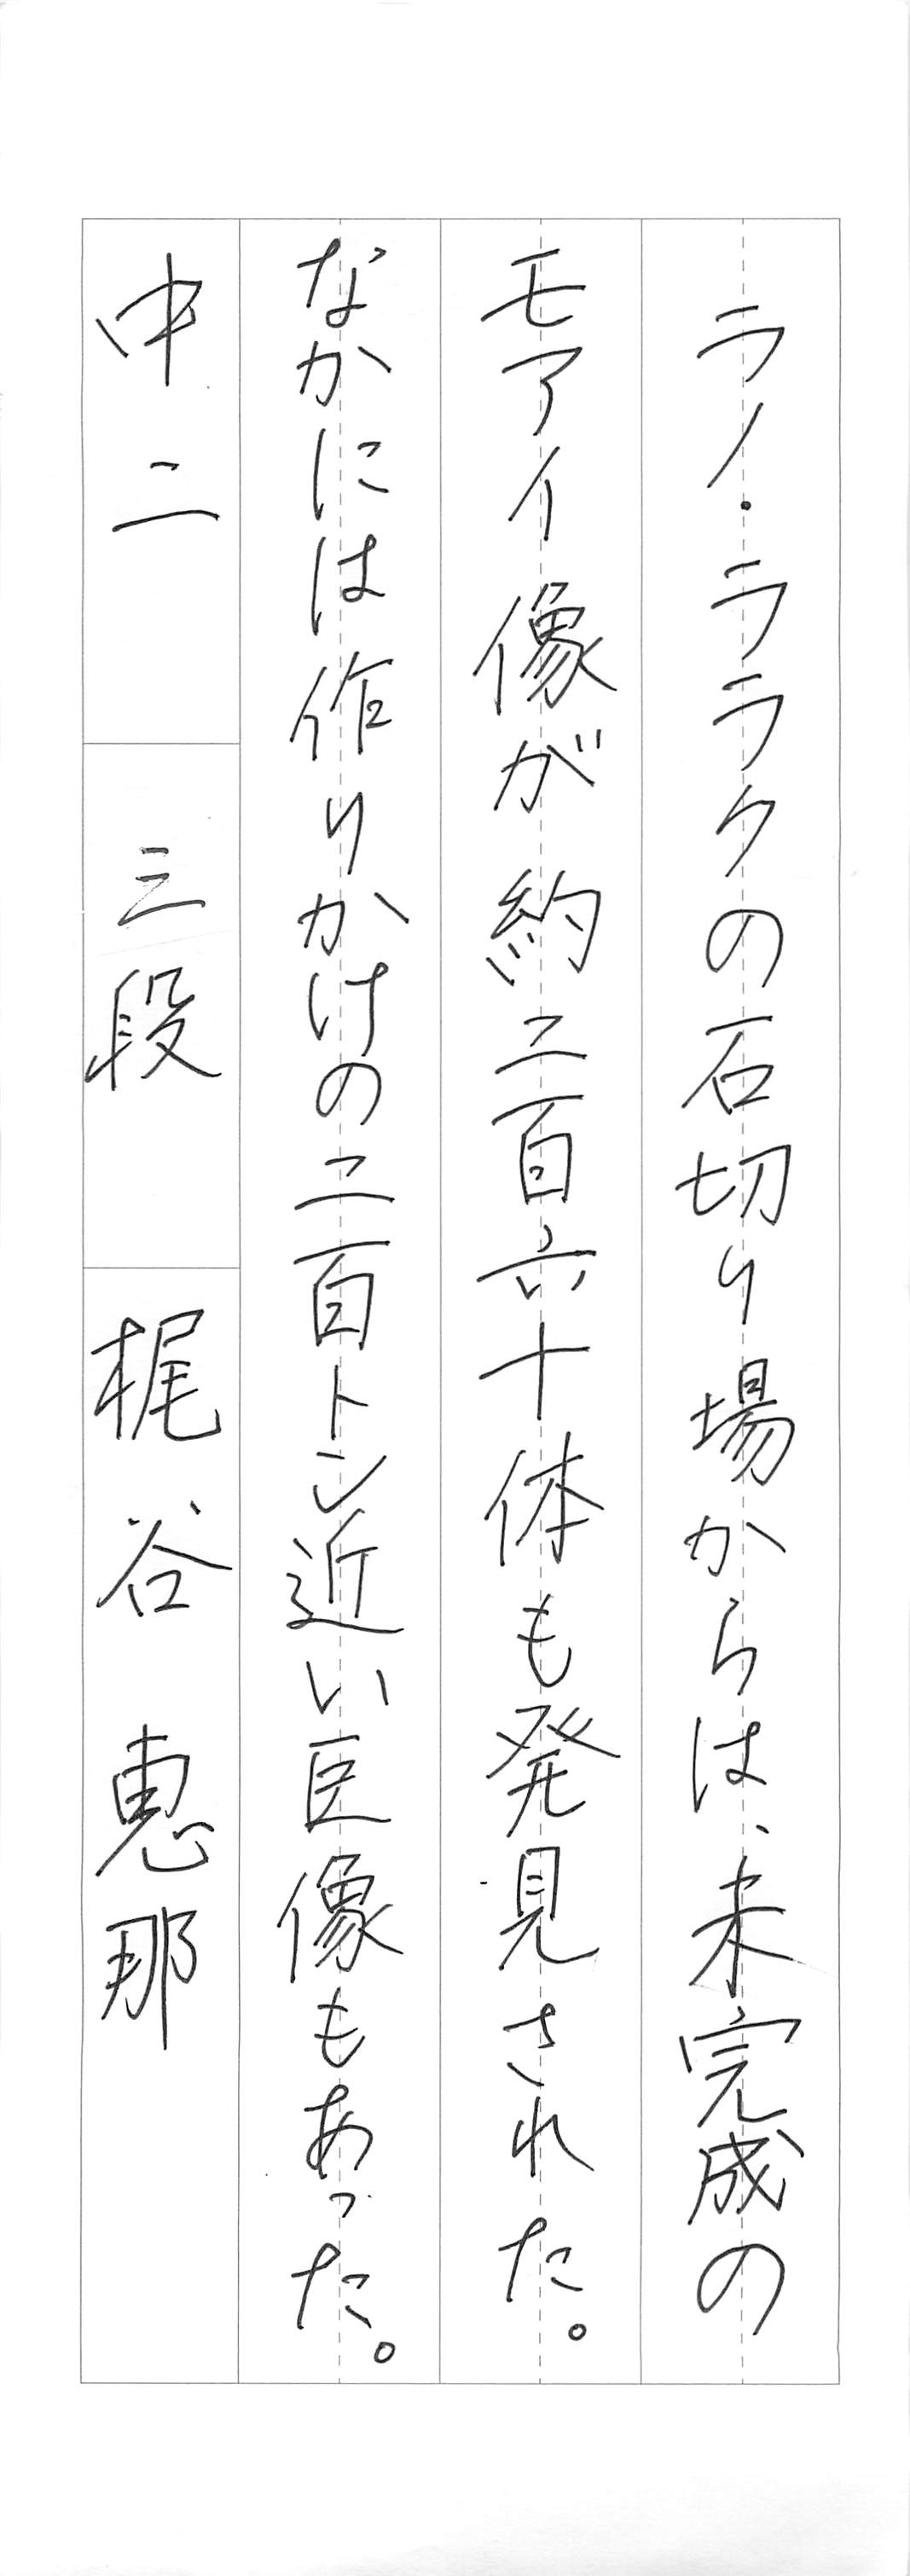 ラノ・ララクの石切り場からは、未完成の
モアイ像が約二百六十体も発見された。
なかには作りかけの二百トン近い巨像もあった。
中二 三段 梶谷 恵那